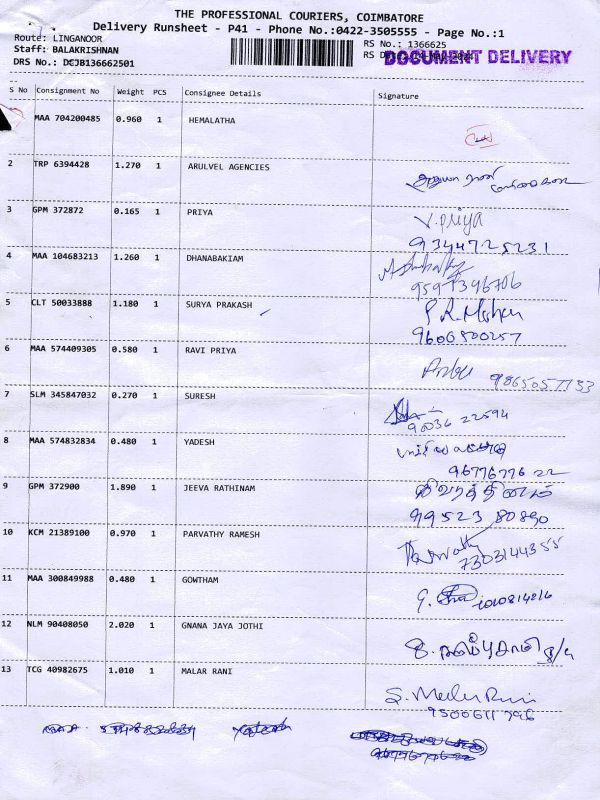 THE PROFESSIONAL COURIERS, COIMBATORE
Delivery Runsheet - P41 - Phone No.:0422-3505555 - Page No.:1
Route: LINGANOOR
RS No.: 1366625
Staff: BALAKRISHNAN
DOCUMENT DELIVERY
DRS No.: DEJB136662501
S No Consignment No Weight PCS Consignee Details Signature
MAA 704200485 0.960 1 HEMALATHA
2 TRP 6394428 1.270 1 ARULVEL AGENCIES
3 GPM 372872 0.165 1 PRIYA V.priya
9344725231
4 MAA 104683213 1.260 1 DHANABAKIAM
9597396706
5 CLT 50033888 1.180 1 SURYA PRAKASH P.R.Mohan
9600800257
6 MAA 574409305 0.580 1 RAVI PRIYA
7 SLM 345847032 0.270 1 SURESH
22594
8 MAA 574832834 0.480 1 YADESH
9677677622
9 GPM 372900 1.890 1 JEEVA RATHINAM ஜீவரத்தினம்
99523 80890
10 KCM 21389100 0.970 1 PARVATHY RAMESH Parvathy
7303144355
11 MAA 300849988 0.480 1 GOWTHAM
12 NLM 90408050 2.020 1 GNANA JAYA JOTHI
13 TCG 40982675 1.010 1 MALAR RANI S. Malar Rani